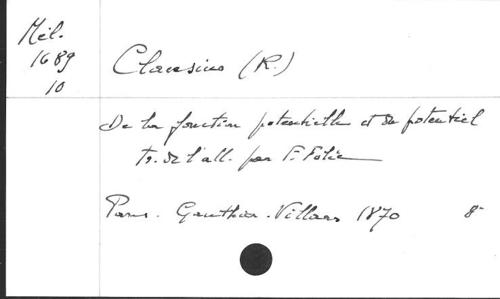 Mél.
1689
10
Clausius (R.)
De la fonction potentielle et du potentiel
tr. de l'all. par F. Folie
Paris. Gauthier-Villars 1870 8°